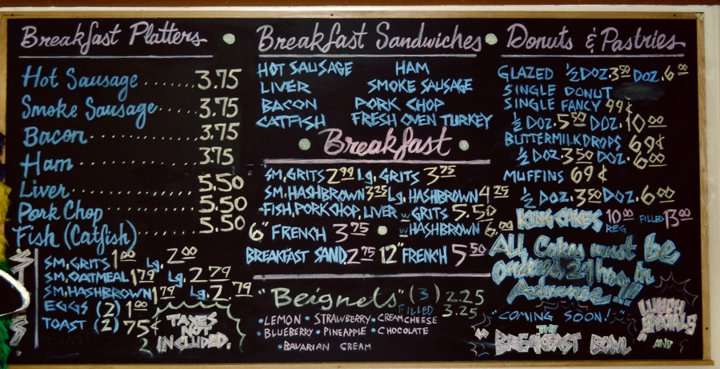 Breakfast Platters
Hot Sausage ...... 3.75
Smoke Sausage ..... 3.75
Bacon ............ 3.75
Ham ............ 3.75
Liver ............ 5.50
Pork Chop ........ 5.50
Fish (Catfish) 5.50
SM. GRITS 1.00 Lg. 2.00
SM. OATMEAL 1.79 Lg. 2.79
SM. HASHBROWN 1.79 Lg. 2.79
EGGS (2) 1.00
TOAST (2) 75¢
TAXES NOT INCLUDED.
Breakfast Sandwiches
HOT SAUSAGE HAM
LIVER SMOKE SAUSAGE
BACON PORK CHOP
CATFISH FRESH OVEN TURKEY
Breakfast
SM. GRITS 2.99 Lg. GRITS 3.75
SM. HASHBROWN 3.25 Lg. HASHBROWN 4.25
FISH, PORK CHOP, LIVER w GRITS 5.50
6" FRENCH 3.75 w HASHBROWN 6.00
BREAKFAST SAND. 2.75 12" FRENCH 5.50
"Beignets" (3) 2.25
FILLED 3.25
• LEMON • STRAWBERRY • CREAM CHEESE
• BLUEBERRY • PINEAPPLE • CHOCOLATE
• BAVARIAN CREAM
Donuts & Pastries
GLAZED ½ DOZ. 3.50 DOZ. 6.00
SINGLE DONUT
SINGLE FANCY 99¢
½ DOZ. 5.50 DOZ. 10.00
BUTTERMILK DROPS 69¢
½ DOZ. 3.50 DOZ. 6.00
MUFFINS 69¢
½ DOZ. 3.50 DOZ. 6.00
KING CAKES 10.00 REG FILLED 13.00
ALL Cakes must be
ordered 24 hrs in
Advance!!!
COMING SOON!
LUNCH SPECIALS
AND
THE
BREAKFAST BOWL